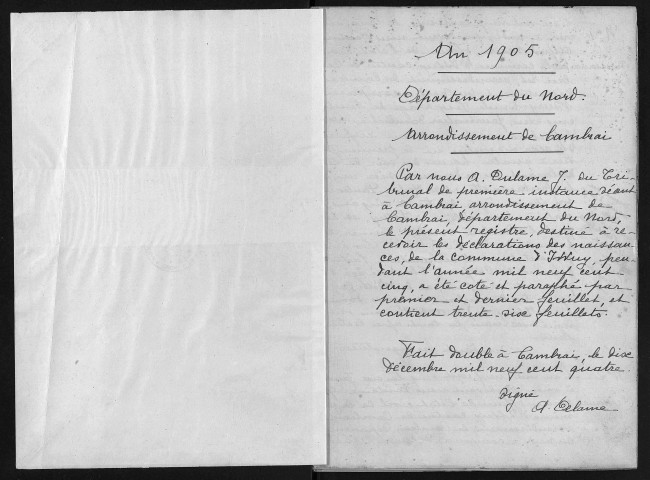 An 1905
Département du Nord.
Arrondissement de Cambrai
Par nous A. J. du Tri-
bunal de première instance séant
à Cambrai, arrondissement de
Cambrai, Département du Nord,
le présent registre, destiné à re-
cevoir les déclarations des naissan-
ces, de la commune d'Iwuy, pen-
dant l'année mil neuf cent
cinq, a été coté et paraphé par
premier et dernier feuillet, et
contient trente-six feuillets.
Fait double à Cambrai, le dix
décembre mil neuf cent quatre.
Signé
A.